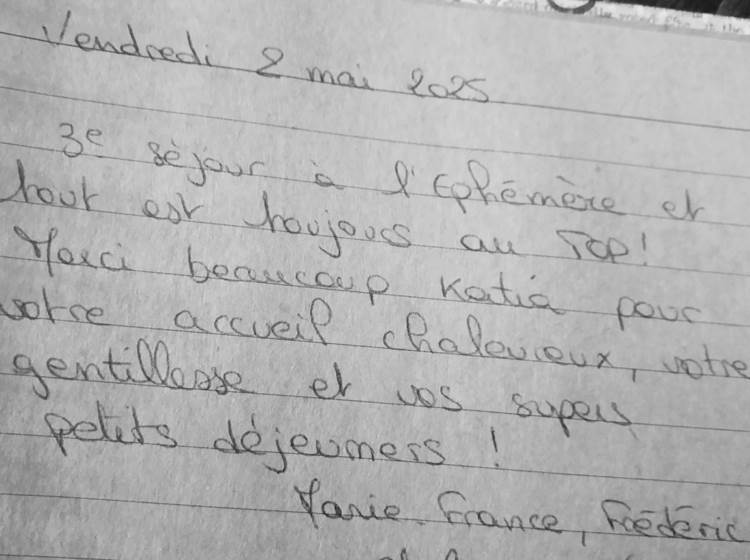 Vendredi 2 mai 2025
3e séjour à l'Ephémère et
tout est toujours au TOP!
Merci beaucoup Katia pour
votre accueil chaleureux, votre
gentillesse et vos supers
petits déjeuners !
Marie-France, Frédéric